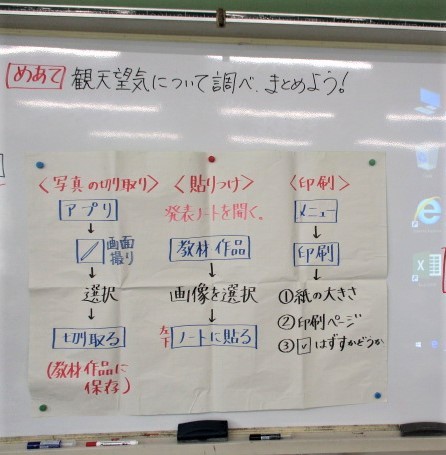 めあて 観天望気について調べ、まとめよう!
〈写真の切取り〉
アプリ
↓
画面
撮り
↓
選択
↓
切取る
(教材作品に
保存)
〈貼りつけ〉
発表ノートを開く。
教材作品
↓
画像を選択
↓
左下 ノートに貼る
〈印刷〉
メニュー
↓
印刷
①紙の大きさ
②印刷ページ
③☑はずすかどうか